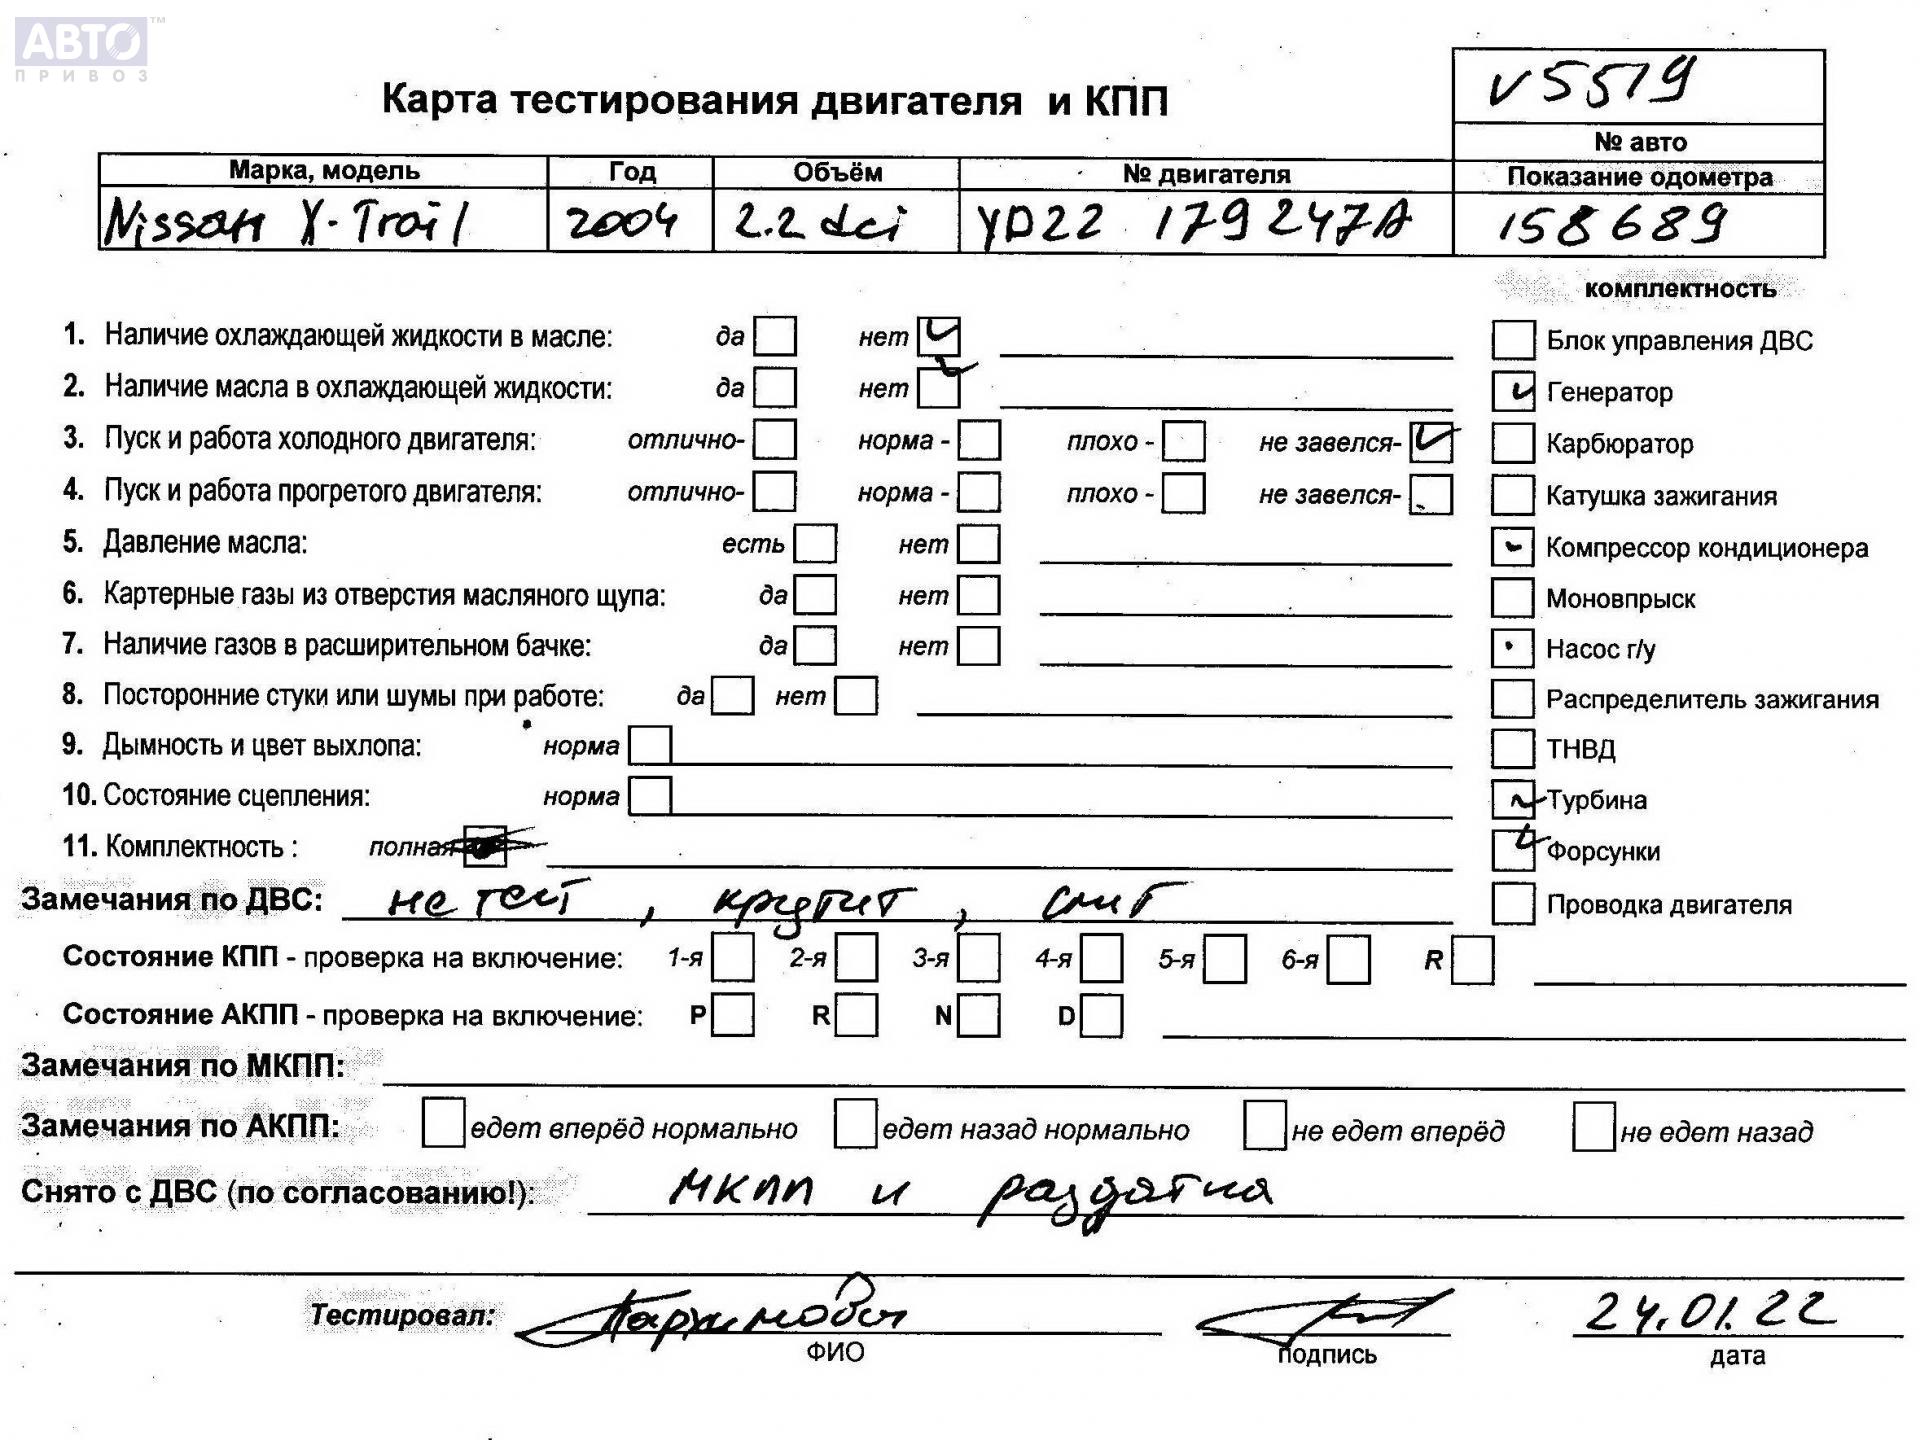 АВТО™
ПРИВОЗ
Карта тестирования двигателя и КПП
V5519
№ авто
Марка, модель Год Объём № двигателя Показание одометра
Nissan X-Trail 2004 2.2 dci YD22 179247A 158689
комплектность
1. Наличие охлаждающей жидкости в масле: да нет Блок управления ДВС
2. Наличие масла в охлаждающей жидкости: да нет Генератор
3. Пуск и работа холодного двигателя: отлично- норма - плохо - не завелся- Карбюратор
4. Пуск и работа прогретого двигателя: отлично- норма - плохо - не завелся- Катушка зажигания
5. Давление масла: есть нет Компрессор кондиционера
6. Картерные газы из отверстия масляного щупа: да нет Моновпрыск
7. Наличие газов в расширительном бачке: да нет Насос г/у
8. Посторонние стуки или шумы при работе: да нет Распределитель зажигания
9. Дымность и цвет выхлопа: норма ТНВД
10. Состояние сцепления: норма Турбина
11. Комплектность : полная Форсунки
Замечания по ДВС: не тест, крутит, Проводка двигателя
Состояние КПП - проверка на включение: 1-я 2-я 3-я 4-я 5-я 6-я R
Состояние АКПП - проверка на включение: P R N D
Замечания по МКПП:
Замечания по АКПП: едет вперёд нормально едет назад нормально не едет вперёд не едет назад
Снято с ДВС (по согласованию!): МКПП и раздатка
Тестировал: 24.01.22
ФИО подпись дата